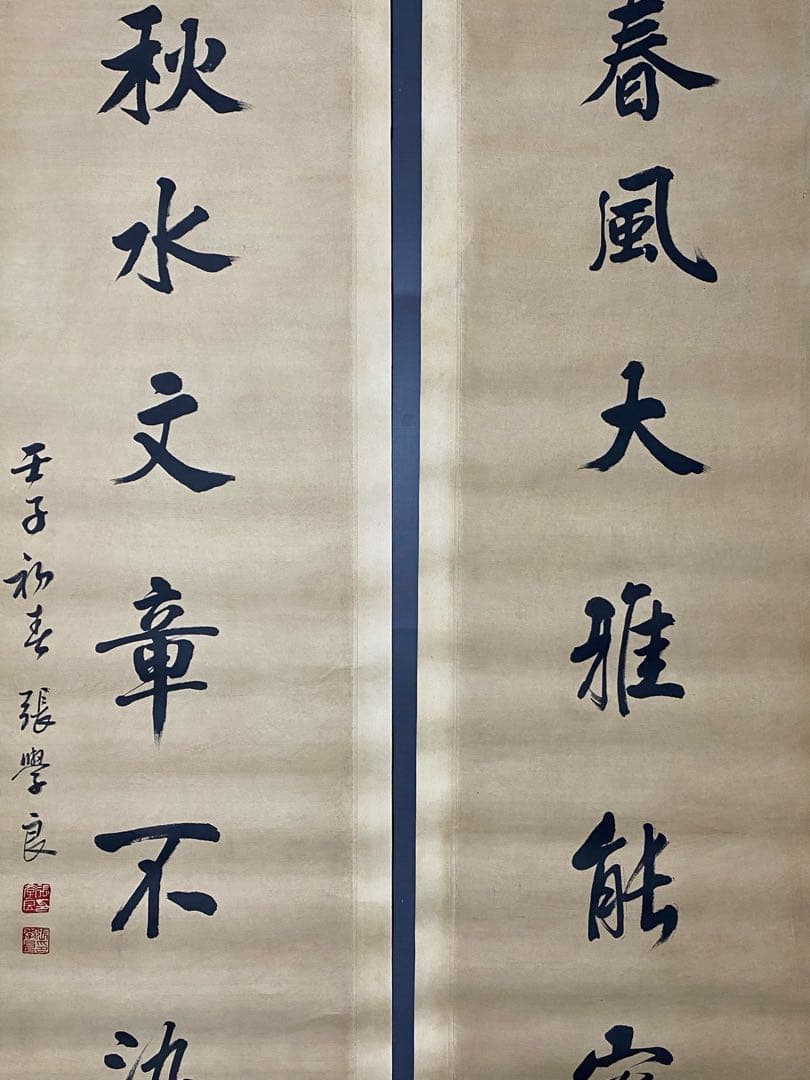 春風大雅能容
秋水文章不染
壬子初春 張學良